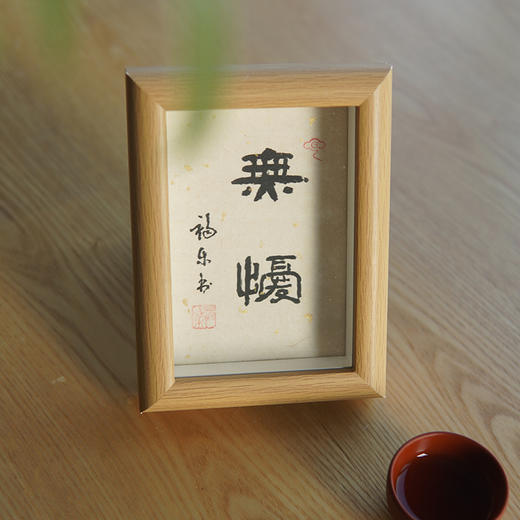 無懮
福乐书